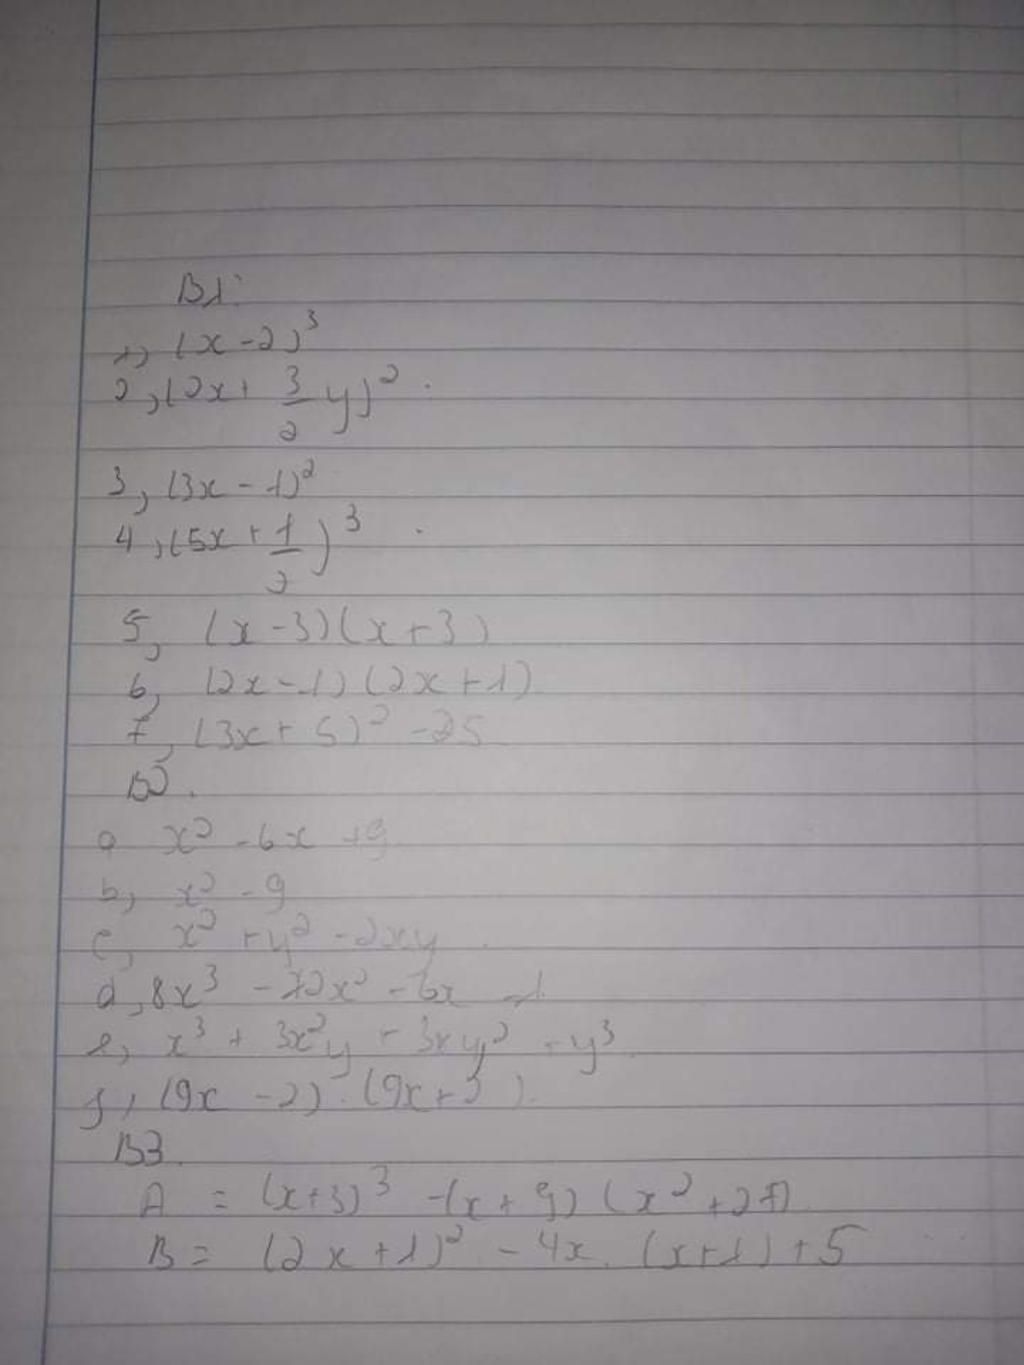 B1:
1, (x-2)³
2, (2x + 3/2 y)²
3, (3x - 1)²
4, (5x + 1/2)³
5, (x-3)(x+3)
6, (2x-1)(2x+1)
7, (3x+5)² - 25
B2.
a x² - 6x + 9
b, x² - 9
c, x² + y² - 2xy
d, 8x³ - 12x² - 6x - 1
e, x³ + 3x²y + 3xy² + y³
f, (9x - 2) . (9x +
B3
A = (x+3)³ - (x+9)(x²+27)
B = (2x+1)² - 4x. (x+1) + 5